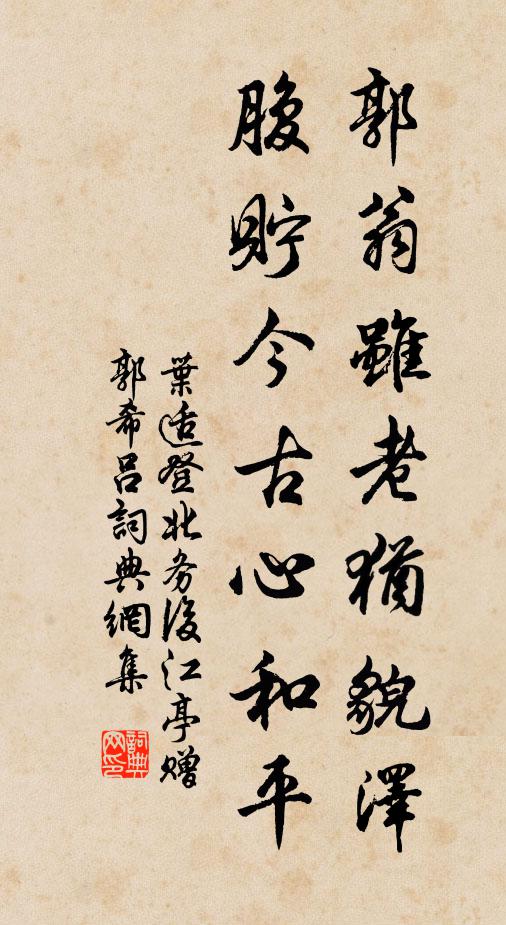 郭翁雖老猶貌澤
腹貯今古心和平
葉适登北务後江亭贈
郭希呂詞典網集
詞典网印